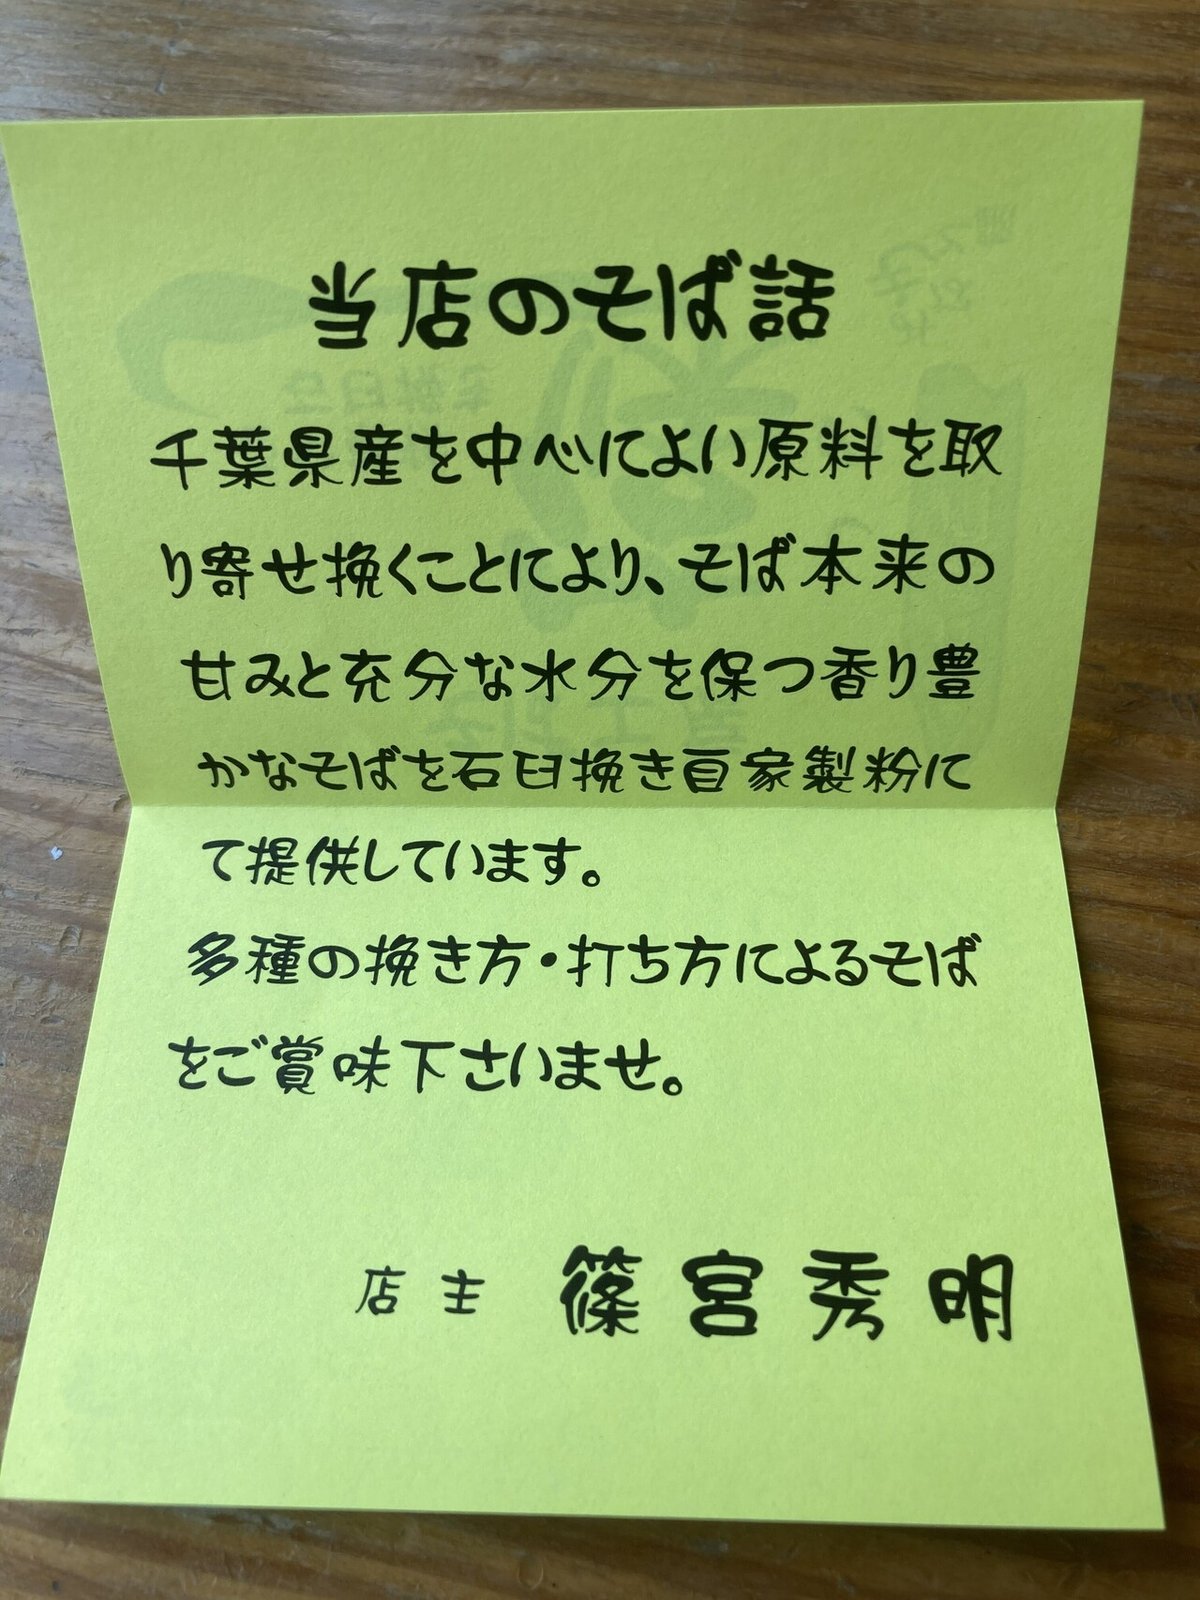 当店のそば話
千葉県産を中心によい原料を取
り寄せ挽くことにより、そば本来の
甘みと充分な水分を保つ香り豊
かなそばを石臼挽き自家製粉に
て提供しています。
多種の挽き方・打ち方によるそば
をご賞味下さいませ。
店主 篠宮秀明